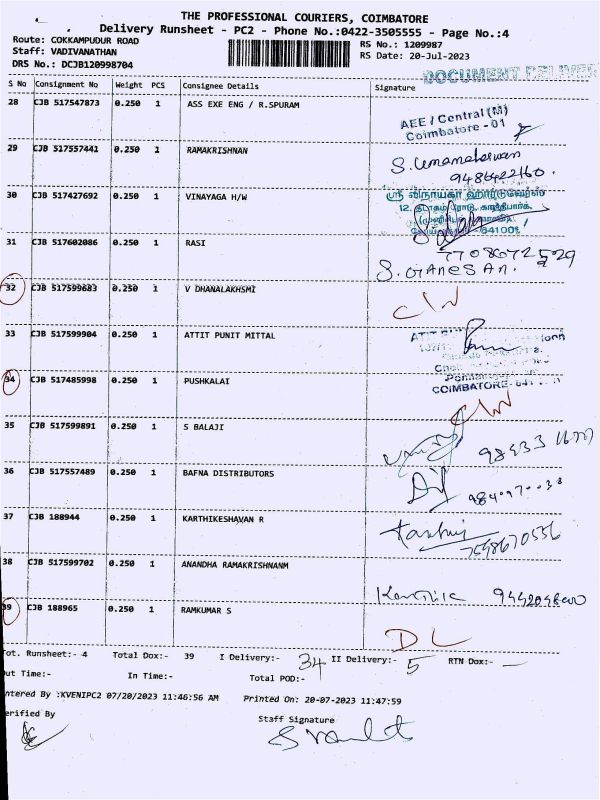 THE PROFESSIONAL COURIERS, COIMBATORE
Delivery Runsheet - PC2 - Phone No.:0422-3505555 - Page No.:4
Route: COKKAMPUDUR ROAD RS No.: 1209987
Staff: VADIVANATHAN RS Date: 20-Jul-2023
DRS No.: DCJB120998704
DOCUMENT DELIVER
S No Consignment No Weight PCS Consignee Details Signature
28 CJB 517547873 0.250 1 ASS EXE ENG / R.SPURAM
AEE / Central (M)
Coimbatore - 01
29 CJB 517557441 0.250 1 RAMAKRISHNAN
S. Umamaheswari
9486422160.
30 CJB 517427692 0.250 1 VINAYAGA H/W
ஸ்ரீ விநாயகா ஹார்டுவேர்ஸ்
12,
31 CJB 517602086 0.250 1 RASI
7708672529
S. GANESAN.
32 CJB 517599683 0.250 1 V DHANALAKHSMI
C/N
33 CJB 517599904 0.250 1 ATTIT PUNIT MITTAL
34 CJB 517485998 0.250 1 PUSHKALAI
COIMBATORE-641
C/N
35 CJB 517599891 0.250 1 S BALAJI
36 CJB 517557489 0.250 1 BAFNA DISTRIBUTORS
37 CJB 188944 0.250 1 KARTHIKESHAVAN R
7598670556
38 CJB 517599702 0.250 1 ANANDHA RAMAKRISHNANM
Karthik
39 CJB 188965 0.250 1 RAMKUMAR S
DL
Tot. Runsheet:- 4 Total Dox:- 39 I Delivery:- 34 II Delivery:- 5 RTN Dox:- —
Out Time:- In Time:- Total POD:-
Entered By :KVENIPC2 07/20/2023 11:46:56 AM Printed On: 20-07-2023 11:47:59
Verified By Staff Signature